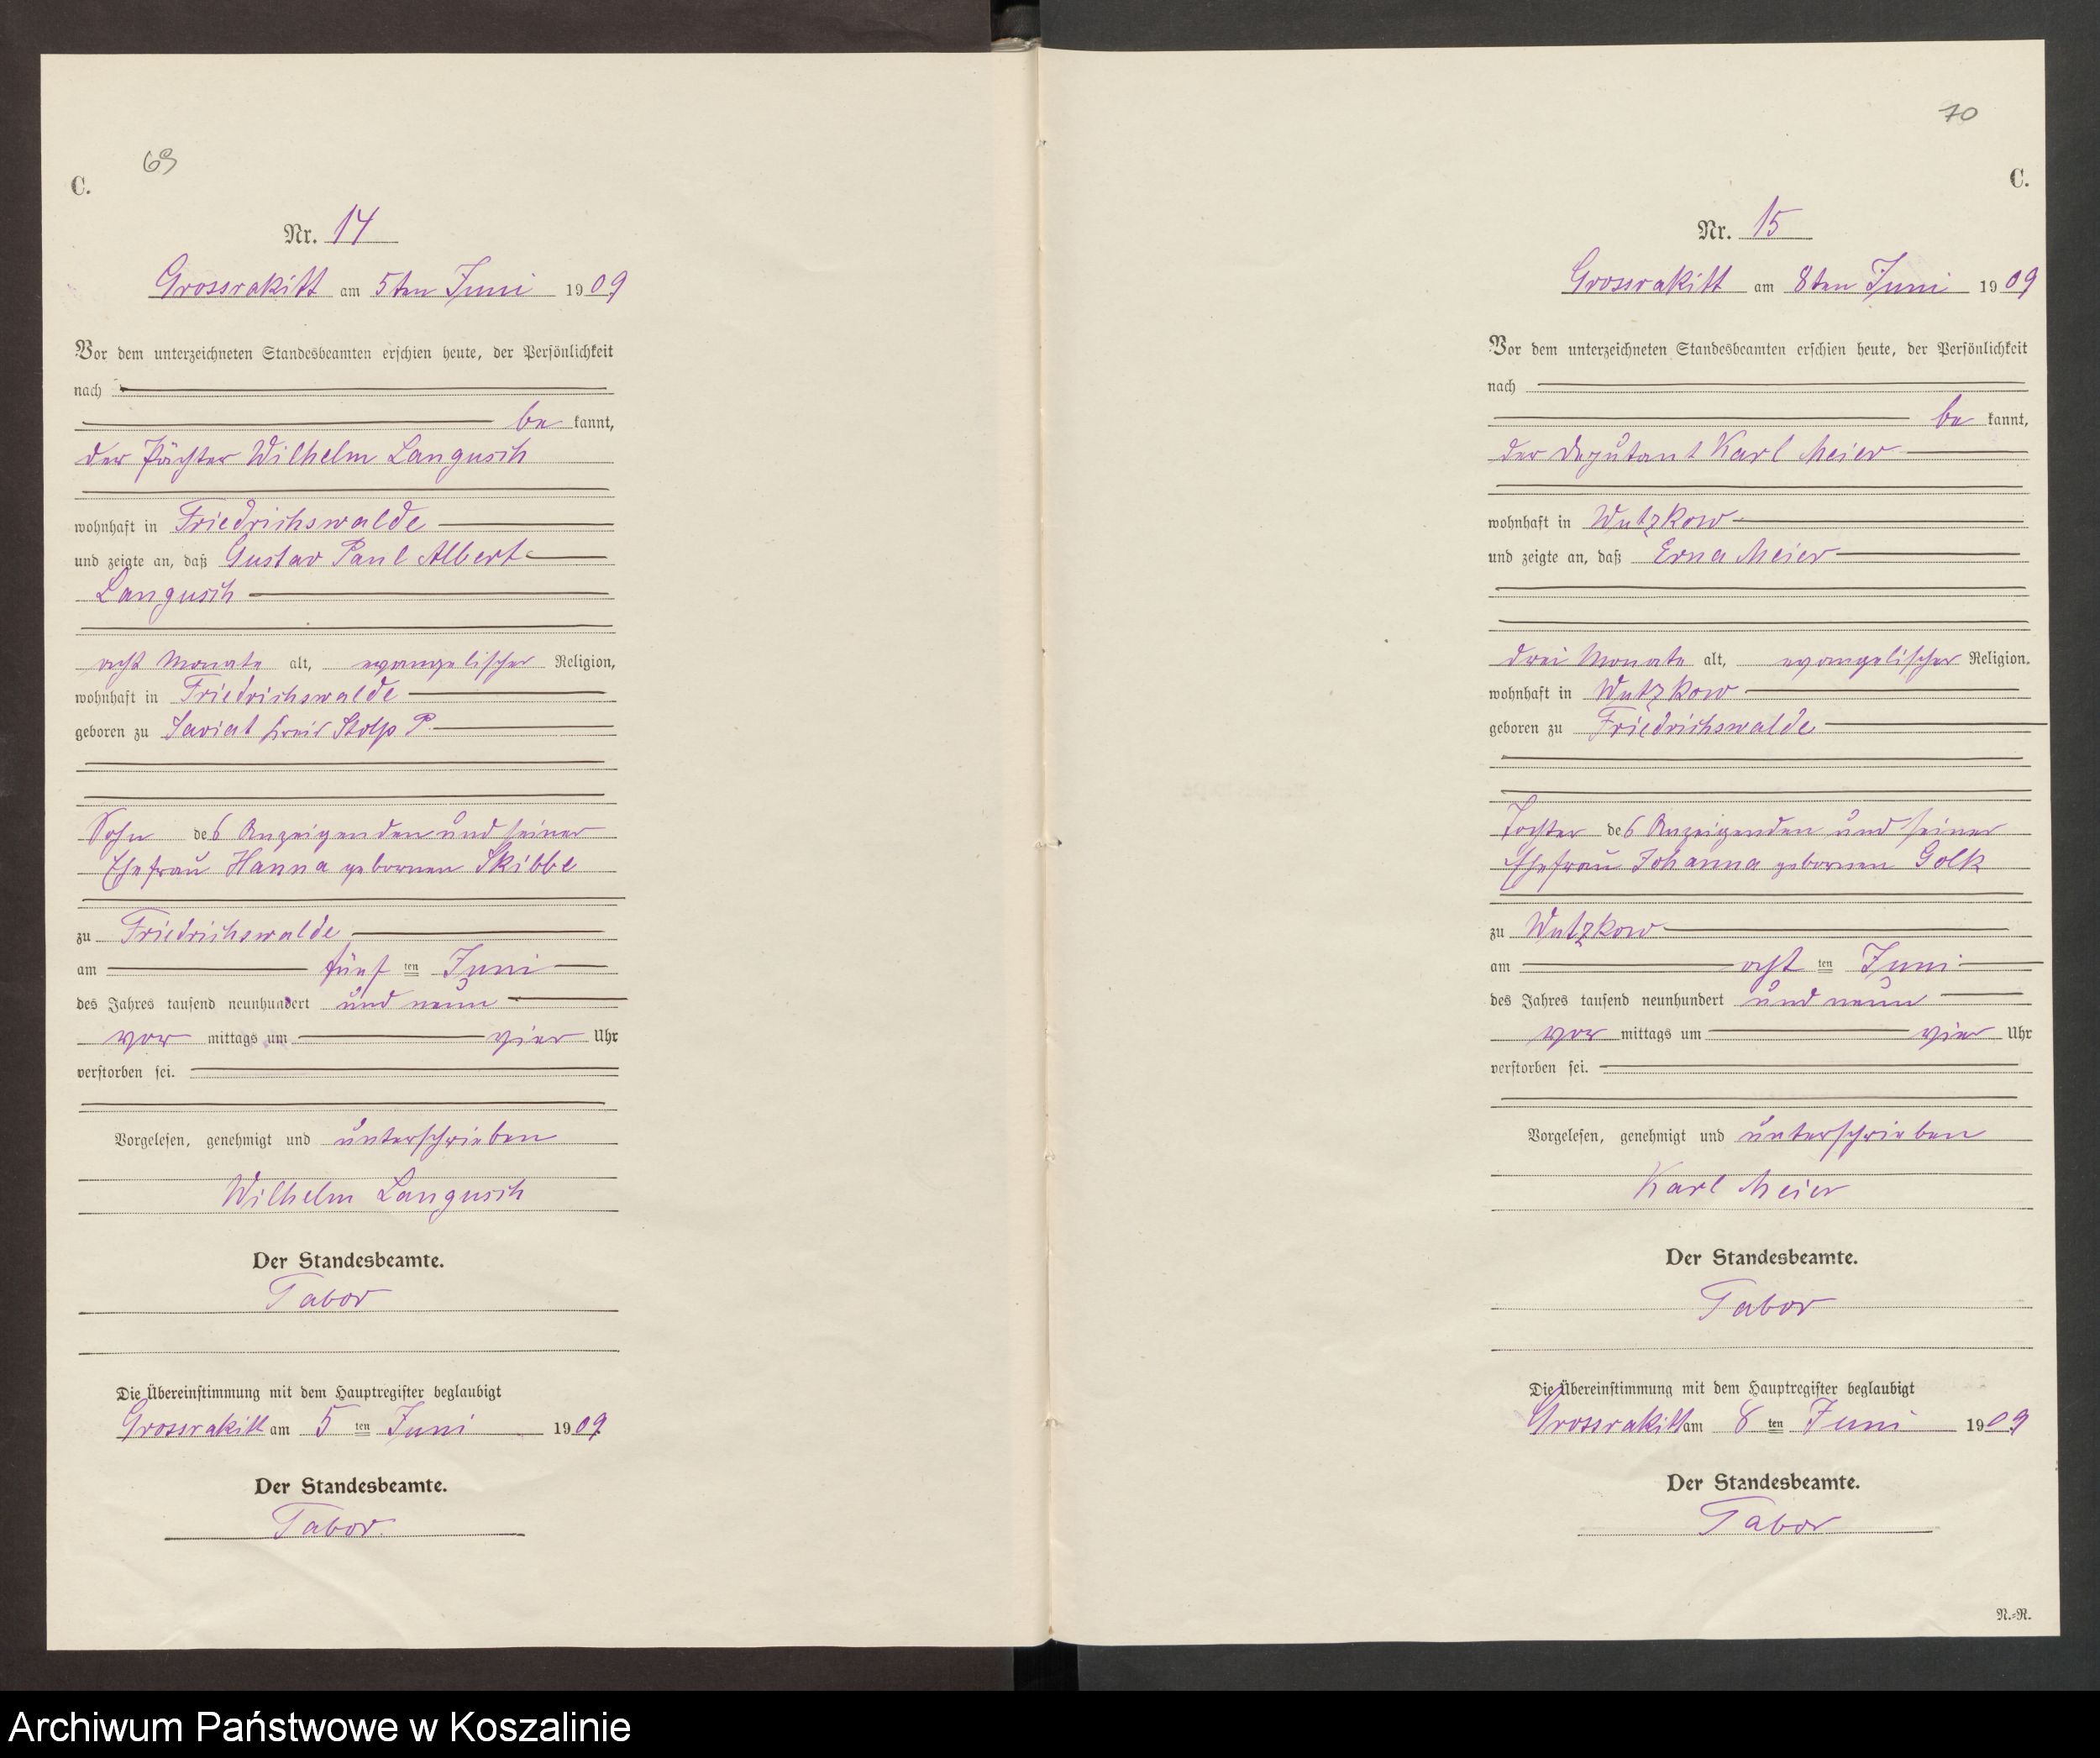 69
C.
Nr. 14
Grossrakitt am 5ten Juni 1909
Vor dem unterzeichneten Standesbeamten erschien heute, der Persönlichkeit
nach
be kannt,
der Pächter Wilhelm Langusch
wohnhaft in Friedrichswalde
und zeigte an, daß Gustav Paul Albert
Langusch
acht Monate alt, evangelischer Religion,
wohnhaft in Friedrichswalde
geboren zu Saviat Kreis Stolp P.
Sohn des Anzeigenden und seiner
Ehefrau Hanna gebornen Skibbe
zu Friedrichswalde
am fünf ten Juni
des Jahres tausend neunhundert und neun
vor mittags um vier Uhr
verstorben sei.
Vorgelesen, genehmigt und unterschrieben
Wilhelm Langusch
Der Standesbeamte.
Tabor
Die Übereinstimmung mit dem Hauptregister beglaubigt
Grossrakitt am 5 ten Juni 1909.
Der Standesbeamte.
Tabor.
70
C.
Nr. 15
Grossrakitt am 8ten Juni 1909
Vor dem unterzeichneten Standesbeamten erschien heute, der Persönlichkeit
nach
be kannt,
der Deputant Karl Meier
wohnhaft in Wutzkow
und zeigte an, daß Erna Meier
drei Monate alt, evangelischer Religion.
wohnhaft in Wutzkow
geboren zu Friedrichswalde
Tochter des Anzeigenden und seiner
Ehefrau Johanna gebornen Golk
zu Wutzkow
am acht ten Juni
des Jahres tausend neunhundert und neun
vor mittags um vier Uhr
verstorben sei.
Vorgelesen, genehmigt und unterschrieben
Karl Meier
Der Standesbeamte.
Tabor
Die Übereinstimmung mit dem Hauptregister beglaubigt
Grossrakitt am 8 ten Juni 1909
Der Standesbeamte.
Tabor
N.=N.
Archiwum Państwowe w Koszalinie